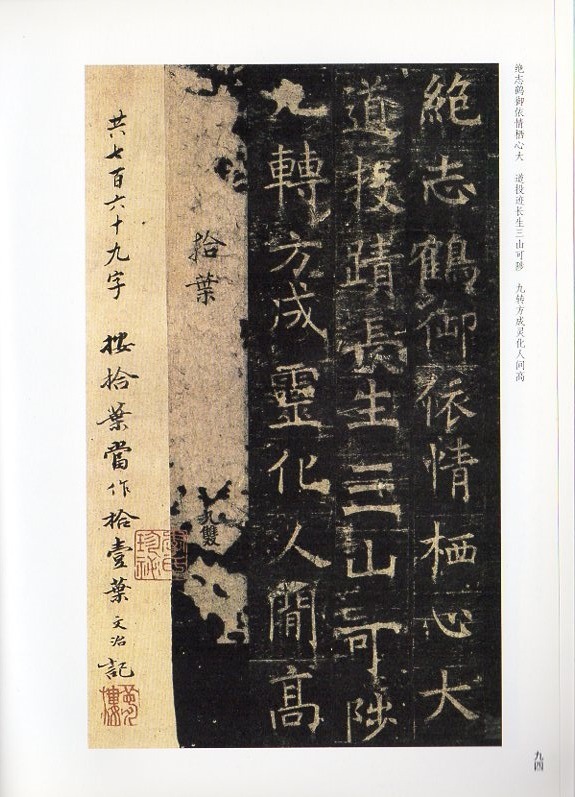 绝志鹤御依情栖心大　道投迹长生三山可陟　九转方成灵化人间高
絶志鶴御依情栖心大
道投蹟長生三山可陟
九轉方成靈化人間髙
拾葉
共七百六十九字
按拾葉當作拾壹葉文治記
夢樓
九四